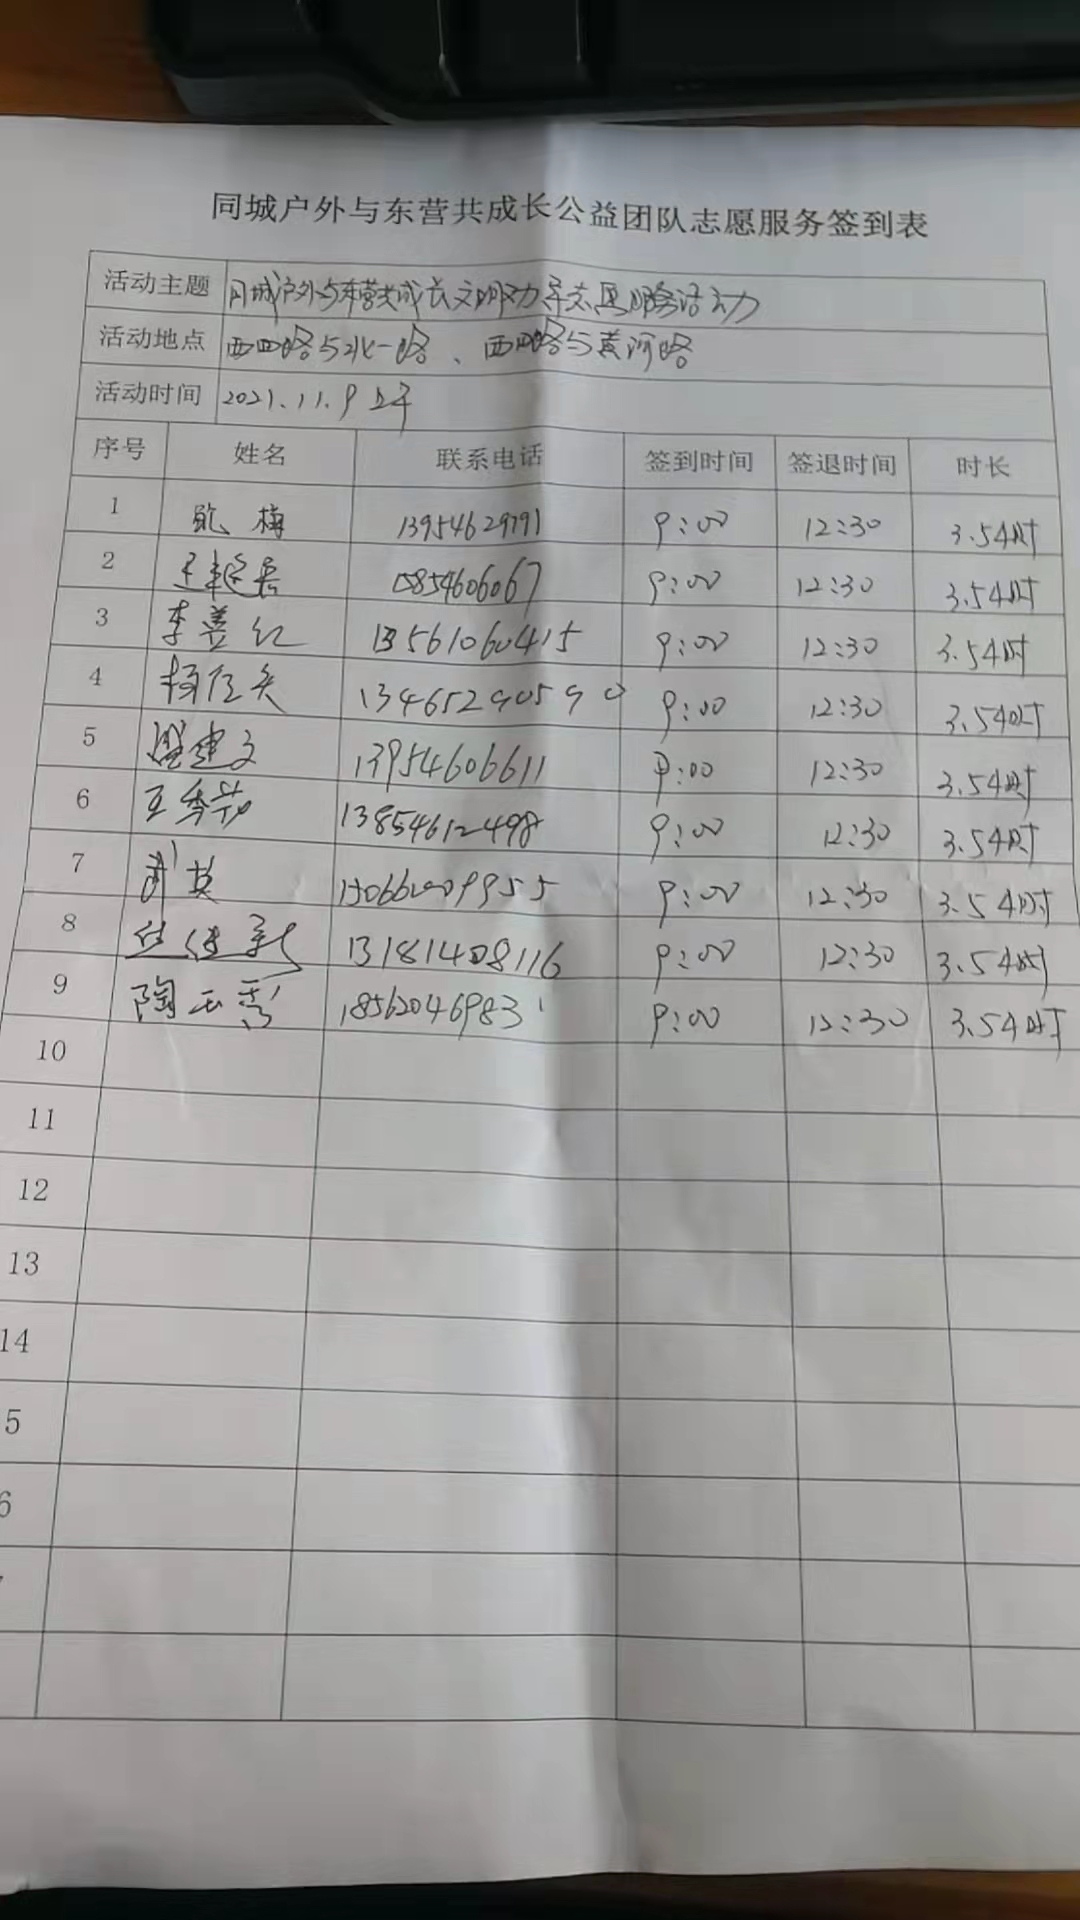 同城户外与东营共成长公益团队志愿服务签到表
活动主题 同城户外与东营共成长文明劝导志愿服务活动
活动地点 西四路与北一路、西四路与黄河路
活动时间 2021.11.9上午
序号 姓名 联系电话 签到时间 签退时间 时长
1 梅 13954629791 9:00 12:30 3.5小时
2 15854606067 9:00 12:30 3.5小时
3 李善红 13561060415 9:00 12:30 3.5小时
4 杨 13465290590 9:00 12:30 3.5小时
5 建文 13954606611 9:00 12:30 3.5小时
6 王秀芬 13854612498 9:00 12:30 3.5小时
7 武英 9:00 12:30 3.5小时
8 13181408116 9:00 12:30 3.5小时
9 陶玉秀 18562046983 9:00 12:30 3.5小时
10
11
12
13
14
5
6